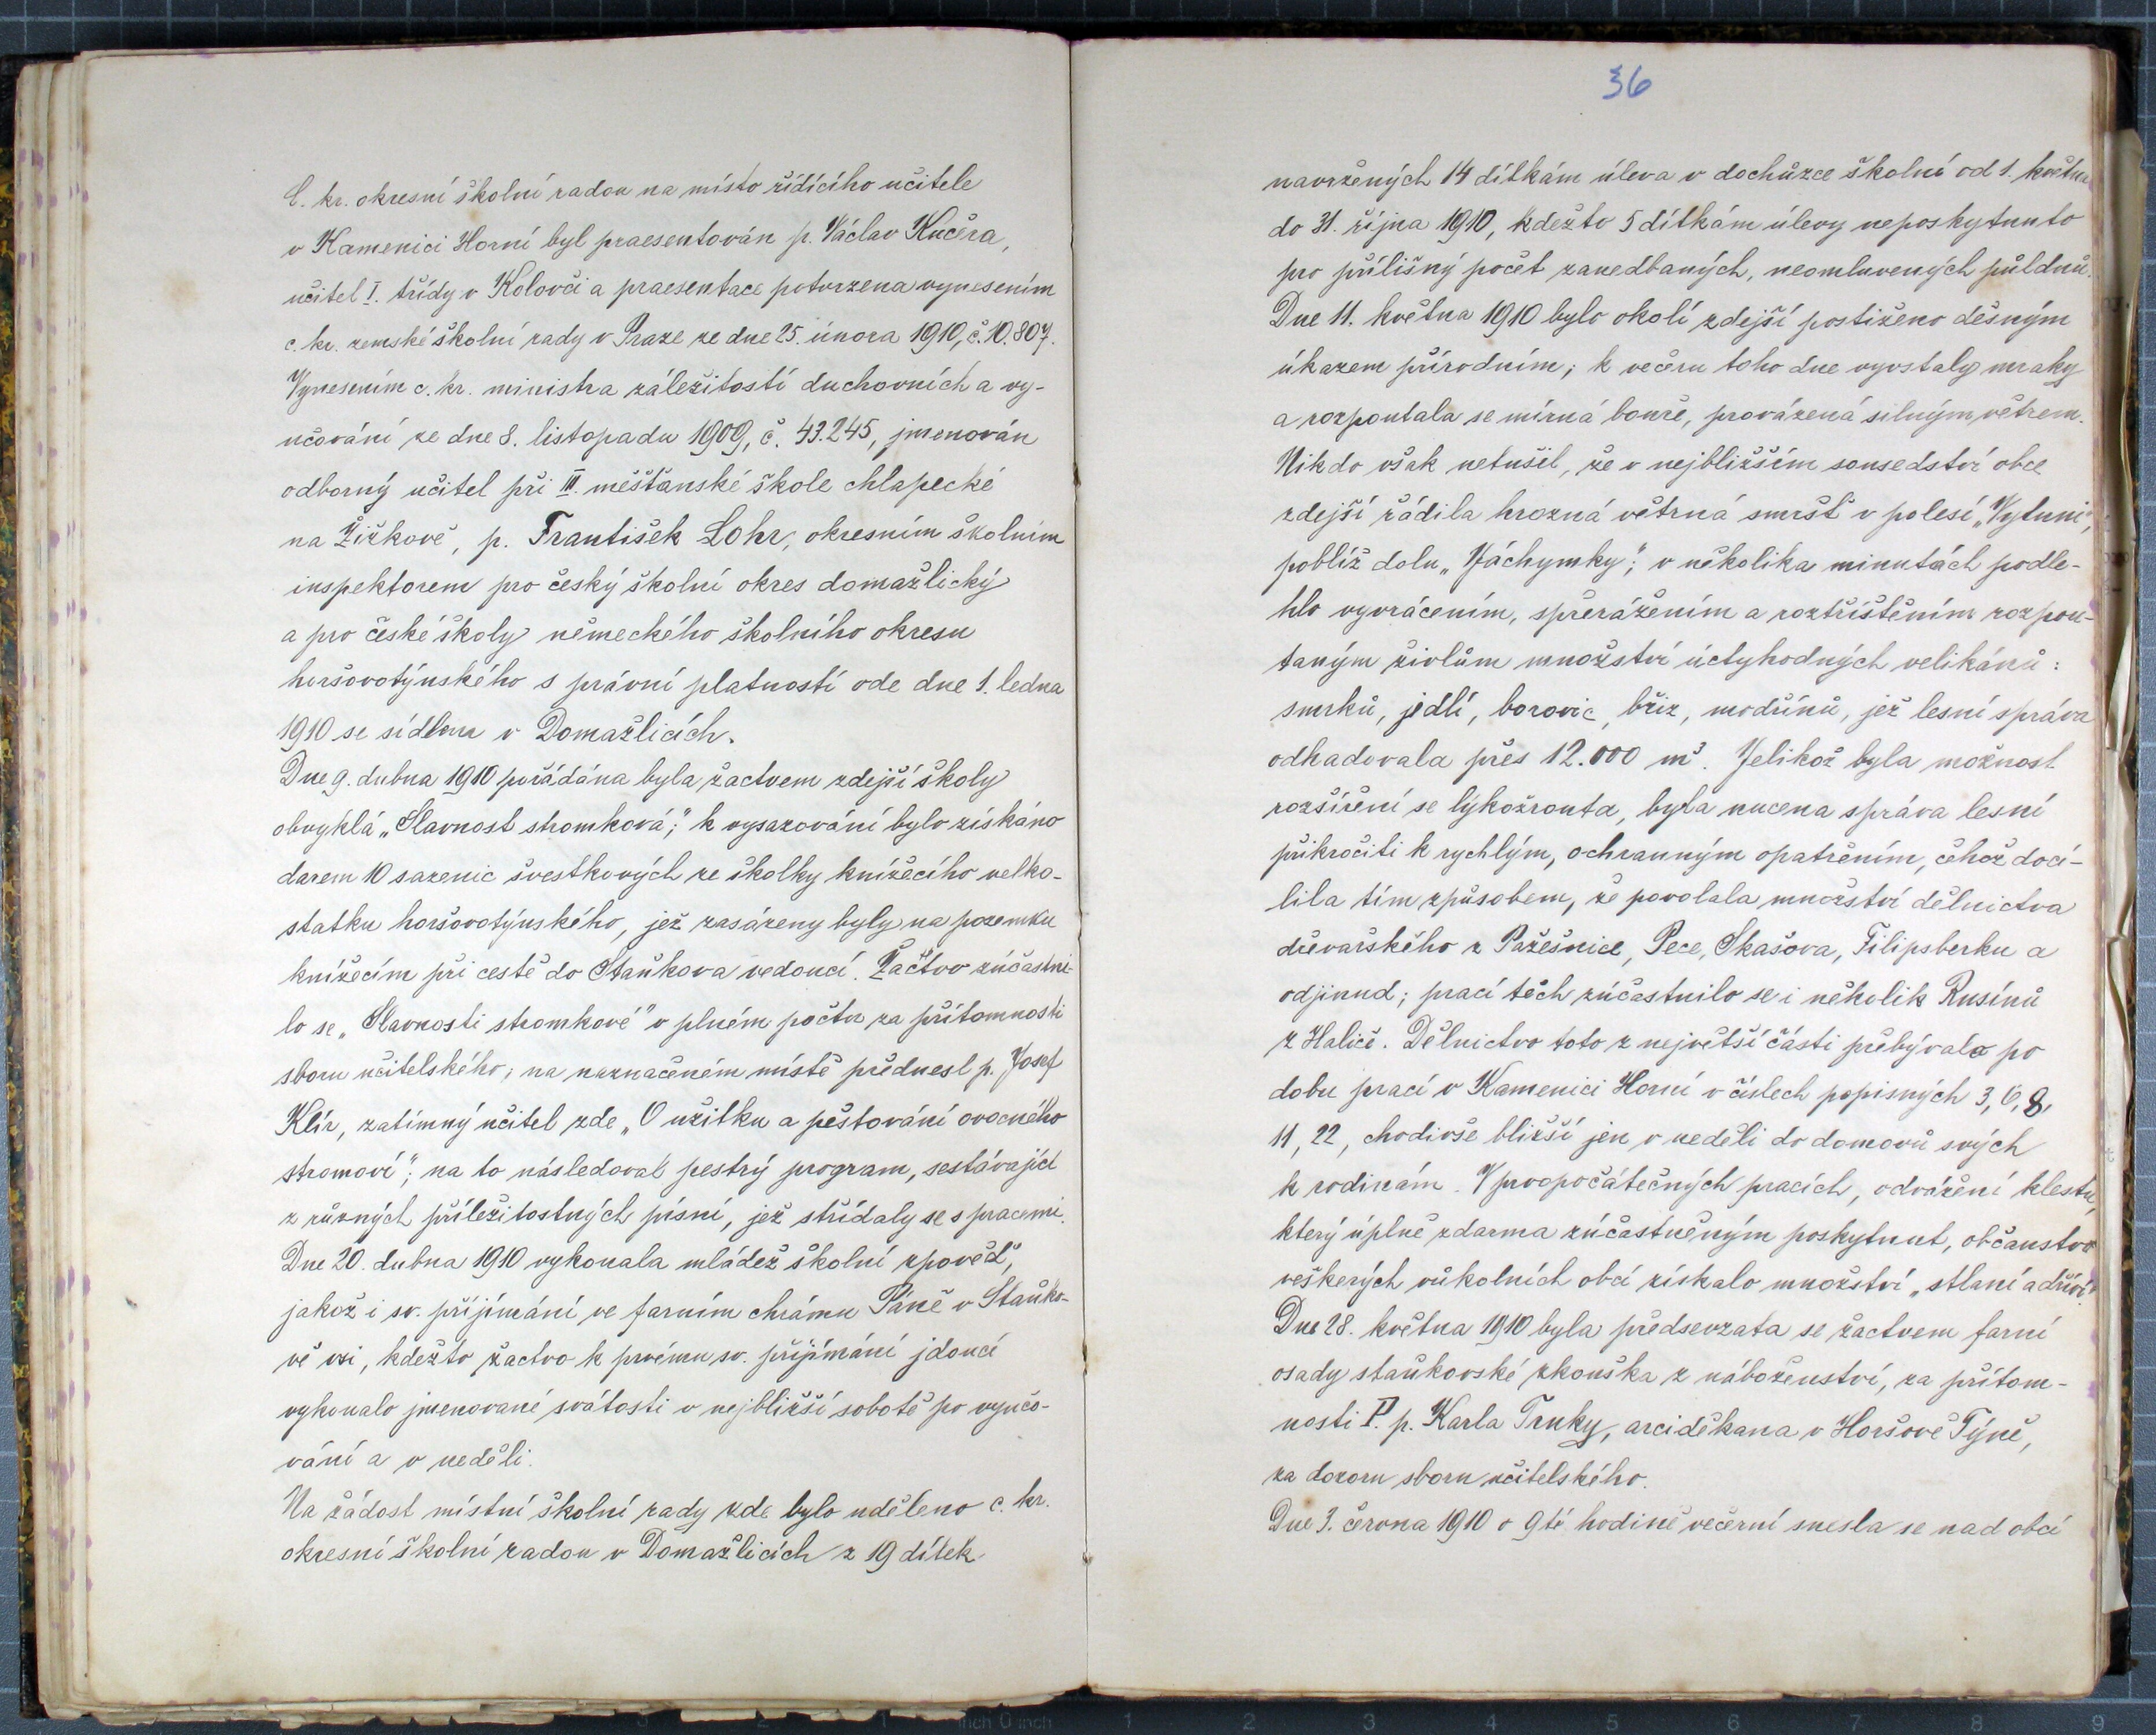 C. kr. okresní školní radou na místo řídícího učitele
v Kamenici Horní byl praesentován p. Václav Kučera,
učitel I. třídy v Kolovči a praesentace potvrzena vynesením
c. kr. zemské školní rady v Praze ze dne 25. února 1910, č. 10.807.
Vynesením c. kr. ministra záležitostí duchovních a vy-
učování ze dne 8. listopadu 1909, č. 43.245, jmenován
odborný učitel při III. měšťanské škole chlapecké
na Žižkově, p. František Lohr, okresním školním
inspektorem pro český školní okres domažlický
a pro české školy německého školního okresu
horšovotýnského s právní platností ode dne 1. ledna
1910 se sídlem v Domažlicích.
Dne 9. dubna 1910 pořádána byla žactvem zdejší školy
obvyklá „Slavnost stromková;" k vysazování bylo získáno
darem 10 sazenic švestkových ze školky knížecího velko-
statku horšovotýnského, jež zasázeny byly na pozemku
knížecím při cestě do Staňkova vedoucí. Žactvo zúčastni-
lo se „Slavnosti stromkové" v plném počtu za přítomnosti
sboru učitelského; na naznačeném místě přednesl p. Josef
Klír, zatímný učitel zde „O užitku a pěstování ovocného
stromoví"; na to následoval pestrý program, sestávající
z různých příležitostných písní, jež střídaly se s pracemi.
Dne 20. dubna 1910 vykonala mládež školní zpověď,
jakož i sv. přijímání ve farním chrámu Páně v Staňko-
vě vsi, kdežto žactvo k prvému sv. přijímání jdoucí
vykonalo jmenované svátosti v nejbližší sobotě po vyučo-
vání a v neděli.
Na žádost místní školní rady zde bylo uděleno c. kr.
okresní školní radou v Domažlicích z 19 dítek
36
navržených 14 dítkám úleva v docházce školní od 1. května
do 31. října 1910, kdežto 5 dítkám úlevy neposkytnuto
pro přílišný počet zanedbaných, neomluvených půldnů.
Dne 11. května 1910 bylo okolí zdejší postiženo děsným
úkazem přírodním; k večeru toho dne vyvstaly mraky
a rozpoutala se mírná bouře, provázená silným větrem.
Nikdo však netušil, že v nejbližším sousedství obce
zdejší řádila hrozná větrná smršť v polesí „Vytuni",
poblíž dolu „Jáchymky"; v několika minutách podle-
hlo vyvrácením, spřerážením a roztříštěním rozpou-
taným živlům množství úctyhodných velikánů:
smrků, jedlí, borovic, bříz, modřínů, jež lesní správa
odhadovala přes 12.000 m³. Jelikož byla možnost
rozšíření se lýkožrouta, byla nucena správa lesní
přikročiti k rychlým, ochranným opatřením, čehož docí-
lila tím způsobem, že povolala množství dělnictva
dřevařského z Pařešnice, Pece, Skašova, Filipsberku a
odjinud; prací těch zúčastnilo se i několik Rusínů
z Haliče. Dělnictvo toto z největší části přebývalo po
dobu prací v Kamenici Horní v číslech popisných 3, 6, 8,
11, 22, chodivše bližší jen v neděli do domovů svých
k rodinám. V prvopočátečných pracích, odvážení klestu,
který úplně zdarma zúčastněným poskytnut, občanstvo
veškerých vůkolních obcí získalo množství „stlaní a dříví".
Dne 28. května 1910 byla předsevzata se žactvem farní
osady staňkovské zkouška z náboženství, za přítom-
nosti P. p. Karla Trnky, arciděkana v Horšově Týně,
za dozoru sboru učitelského.
Dne 3. června 1910 o 9té hodině večerní snesla se nad obcí